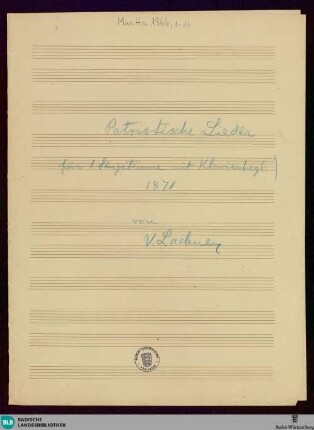 Mus. Hs. 1366, 1-14
Patriotische Lieder
für 1 Singstimme mit Klavierbegl.)
1871
von
V. Lachner
BLB BADISCHE
LANDESBIBLIOTHEK
Baden-Württemberg